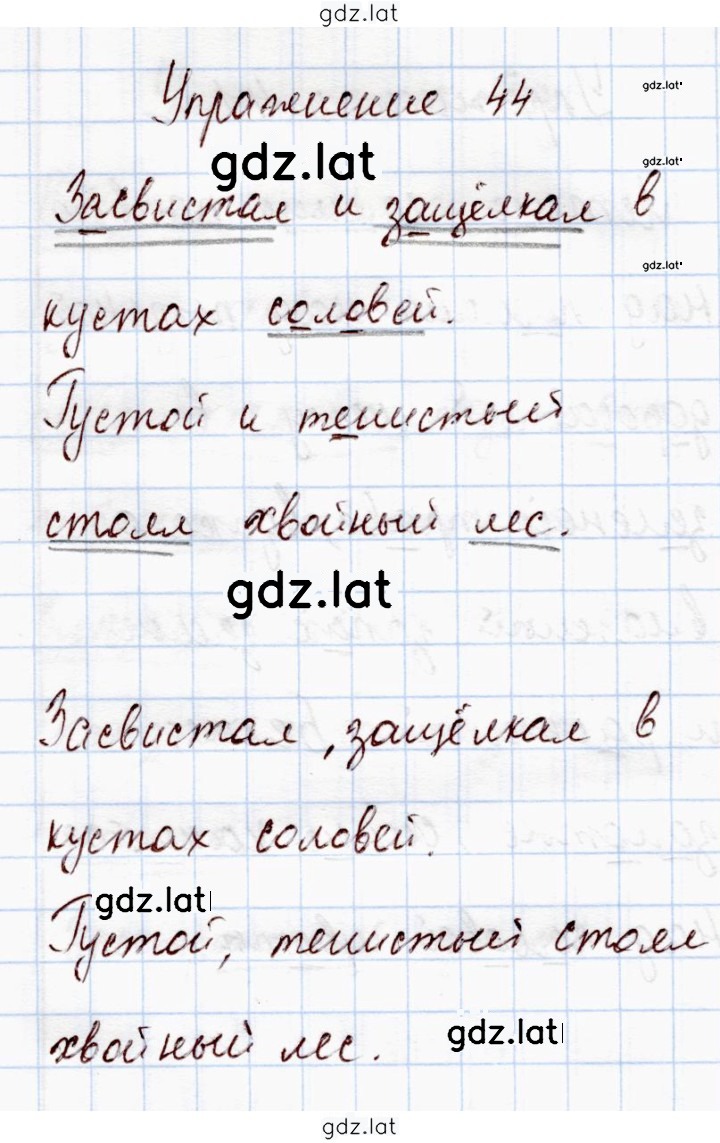 gdz.lat
Упражнение 44
gdz.lat
gdz.lat
gdz.lat
Засвистал и защёлкал в
gdz.lat
кустах соловей.
Густой и тенистый
стоял хвойный лес.
gdz.lat
Засвистал, защёлкал в
кустах соловей.
gdz.lat
Густой, тенистый стоял
хвойный лес.
gdz.lat
gdz.lat